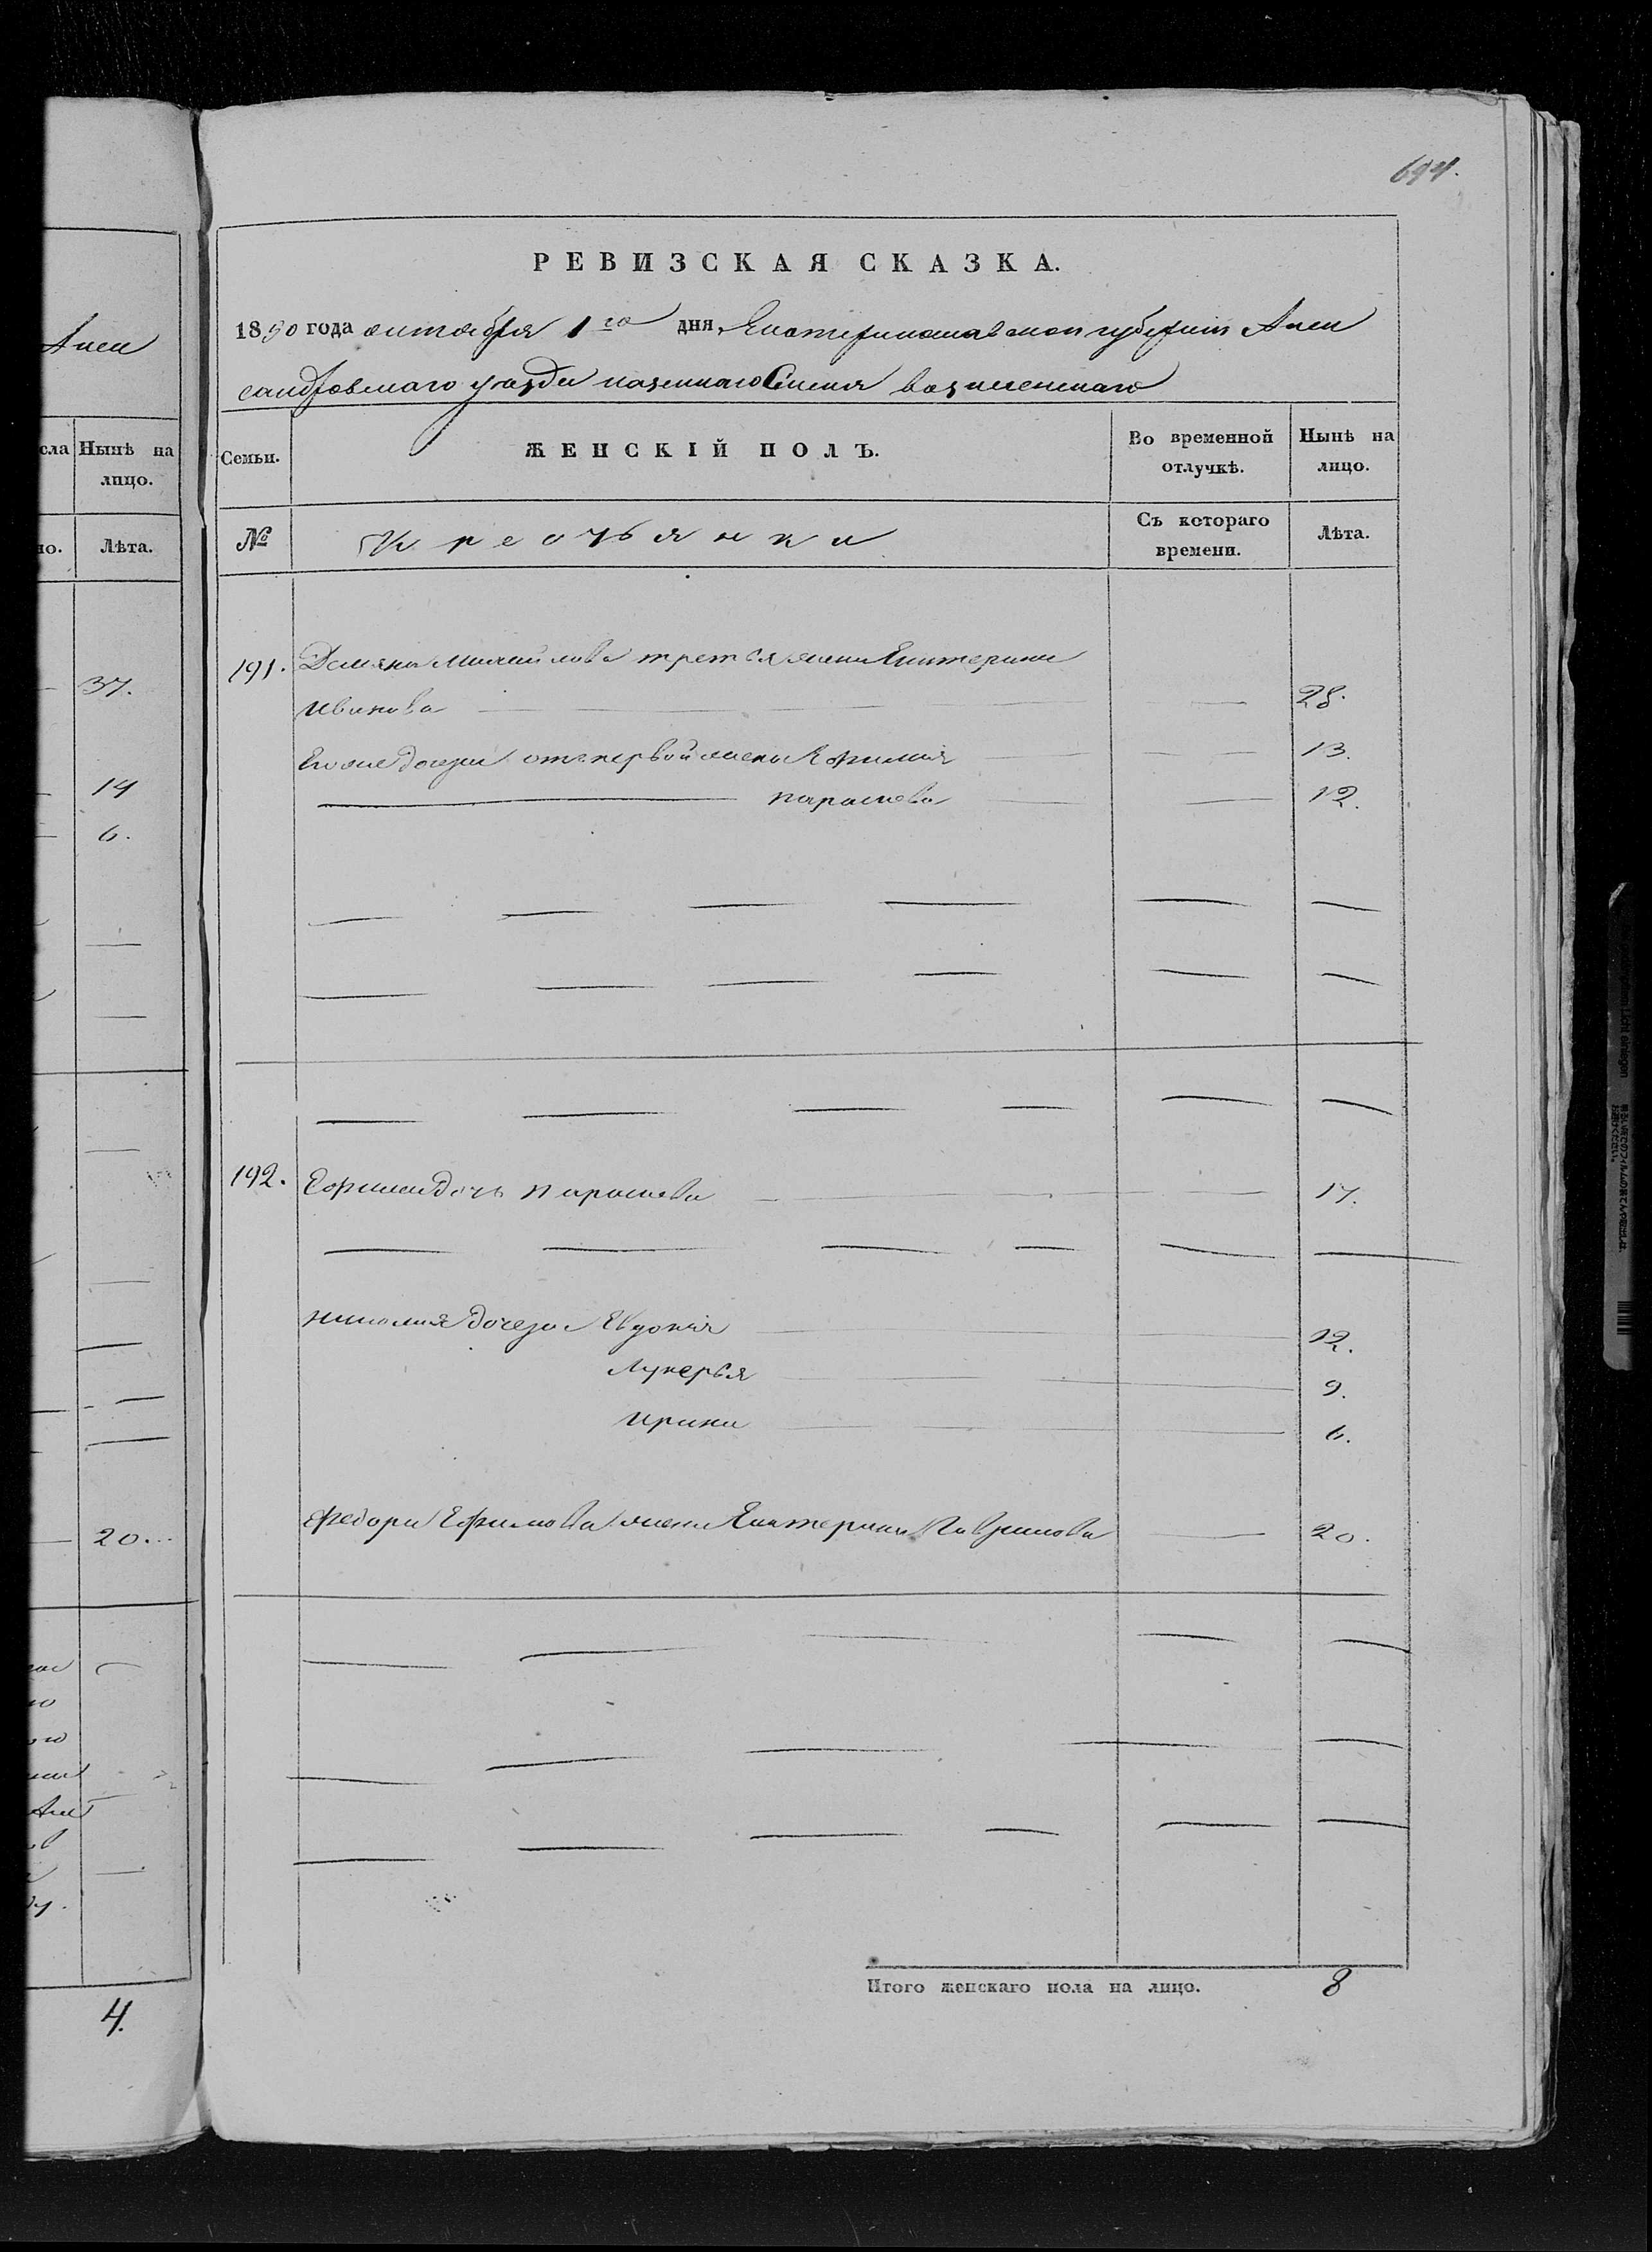 694.
РЕВИЗСКАЯ СКАЗКА.
1850 года октября 1го дня Екатеринославской губернии Алек
сандровскаго уезда казеннаго Селения вознесенскаго
Алек
сла Нынѣ на лицо.
но. Лѣта.
37.
14
6.
20.
4.
Семьи. ЖЕНСКІЙ ПОЛЪ. Во временной отлучкѣ. Нынѣ на лицо.
№ Крестьянки Съ котораго времени. Лѣта.
191. Демяна Михайлова третья жена Екатерина
Иванова 28.
Его же дочери от первой жены Ефимия 13.
параскева 12.
192. Ефима дочь параскева 17.
николая дочери Евдокия 12.
Лукерья 9.
ирина 6.
Федора Ефимова жена Екатерина Гаврилова 20.
Итого женскаго пола на лицо. 8